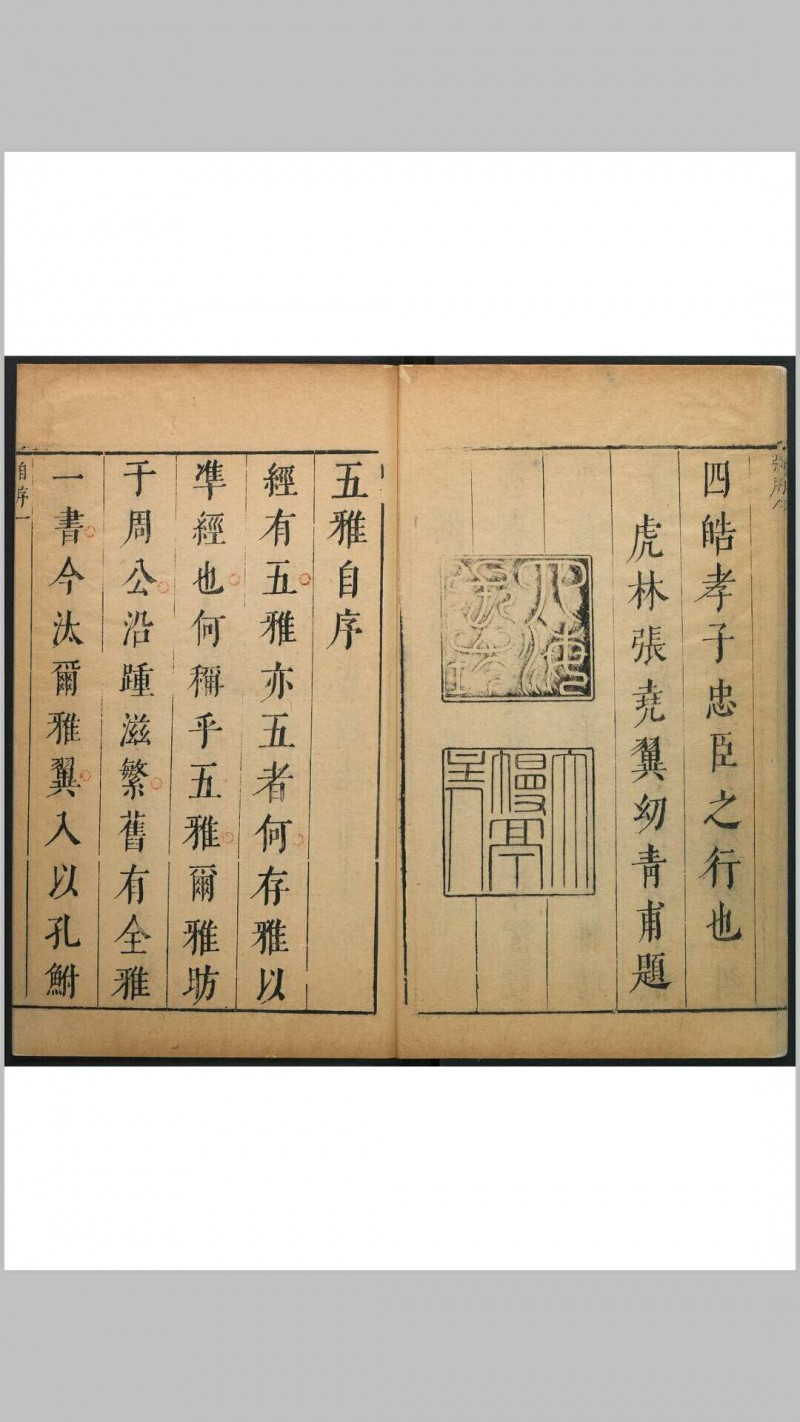 四皓孝子忠臣之行也
虎林張堯翼幼青甫題
五雅自序
經有五雅亦五者何存雅以
準經也何稱乎五雅爾雅昉
于周公沿踵滋繁舊有全雅
一書今汰爾雅翼入以孔鮒
自序一